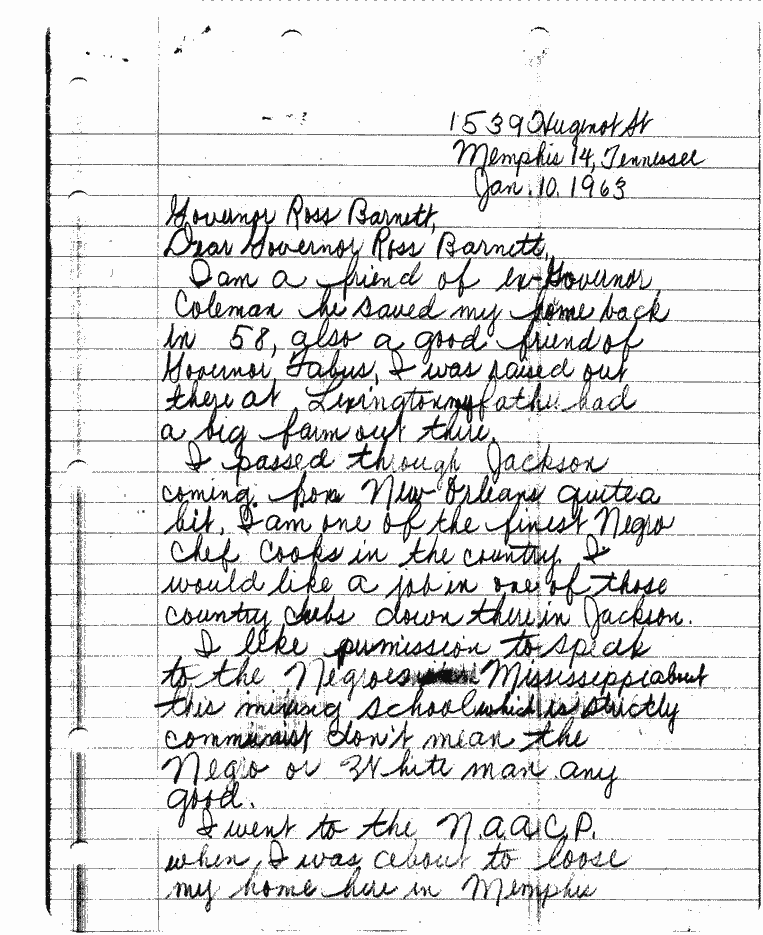 1539 Hugenot St
Memphis 14, Tennessee
Jan. 10. 1963
Governor Ross Barnett,
Dear Governor Ross Barnett,
I am a friend of ex-Governor
Coleman he saved my home back
in 58, also a good friend of
Governor Fabus, I was raised out
there at Lexington my father had
a big farm out there.
I passed through Jackson
coming from New Orleans quite a
bit. I am one of the finest Negro
Chef Cooks in the country I
would like a job in one of those
country clubs down there in Jackson.
I like permission to speak
to the Negroes Mississippi about
this mixing school which is strictly
communist don't mean the
Negro or White man any
good.
I went to the N.A.A.C.P.
when I was about to loose
my home here in Memphis